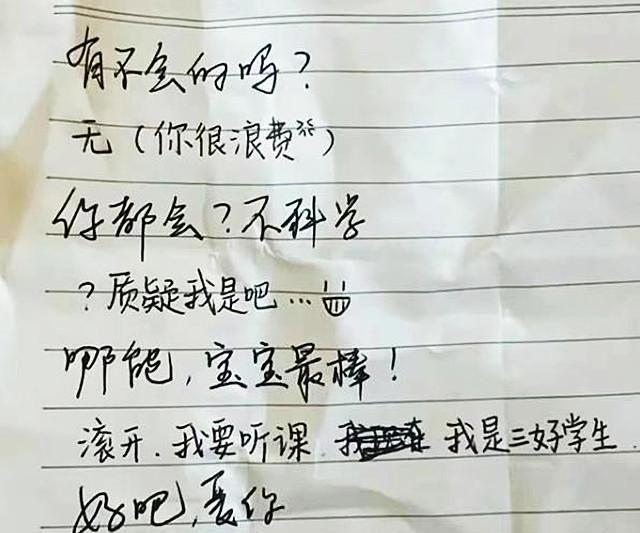 有不会的吗？
无（你很浪费纸）
你都会？不科学
？质疑我是吧…
哪能，宝宝最棒！
滚开．我要听课．我是三好学生．
好吧，爱你